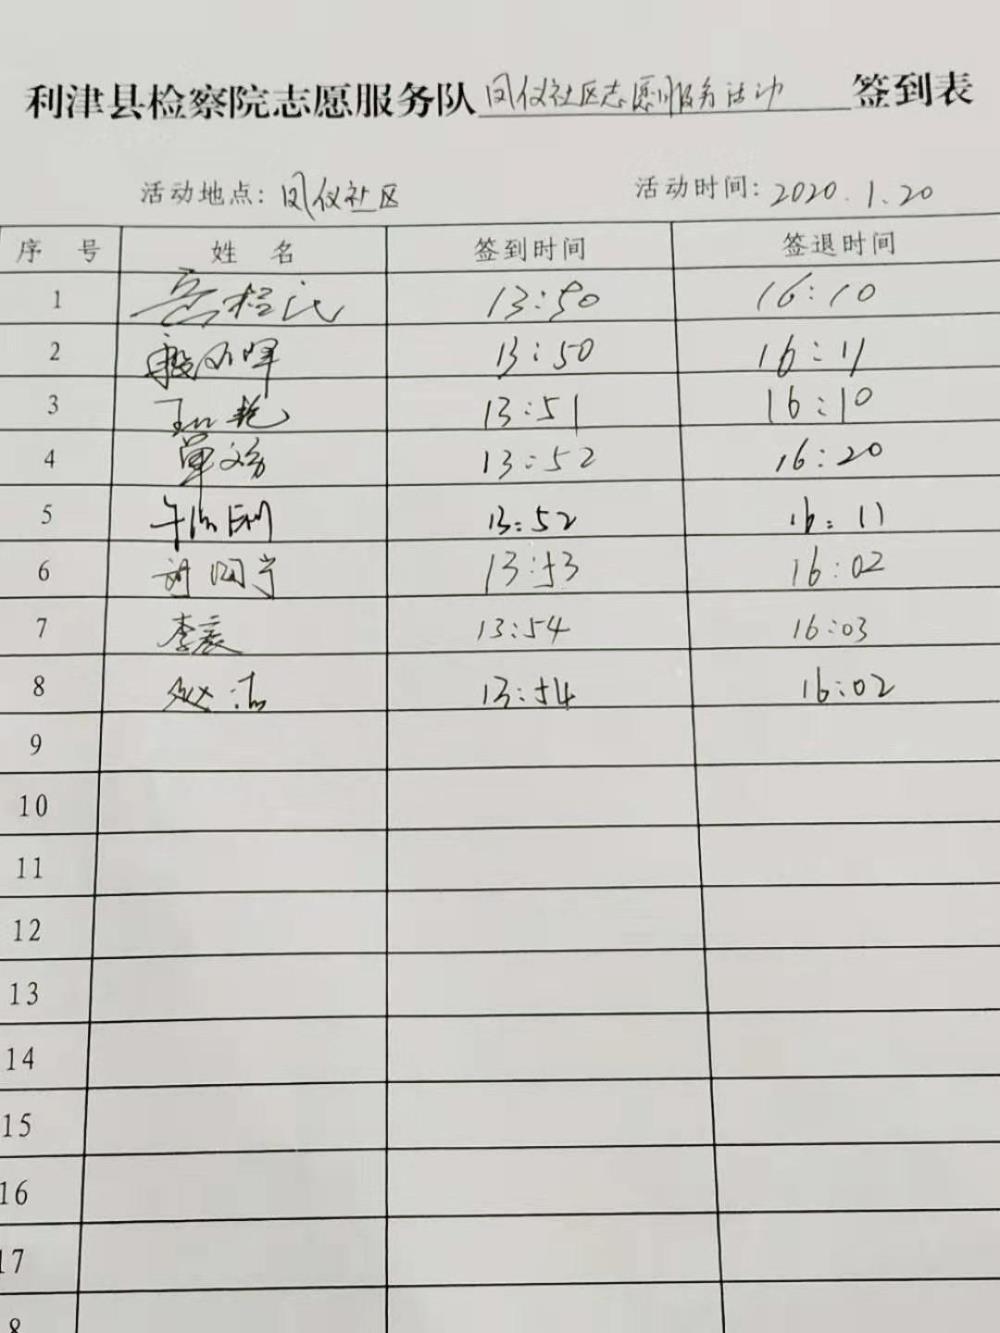 利津县检察院志愿服务队凤仪社区志愿服务活动签到表
活动地点：凤仪社区 活动时间：2020.1.20
序号 姓名 签到时间 签退时间
1 13:50 16:10
2 13:50 16:11
3 13:51 16:10
4 单 13:52 16:20
5 13:52 16:11
6 13:53 16:02
7 李 13:54 16:03
8 赵 13:54 16:02
9
10
11
12
13
14
15
16
17
8